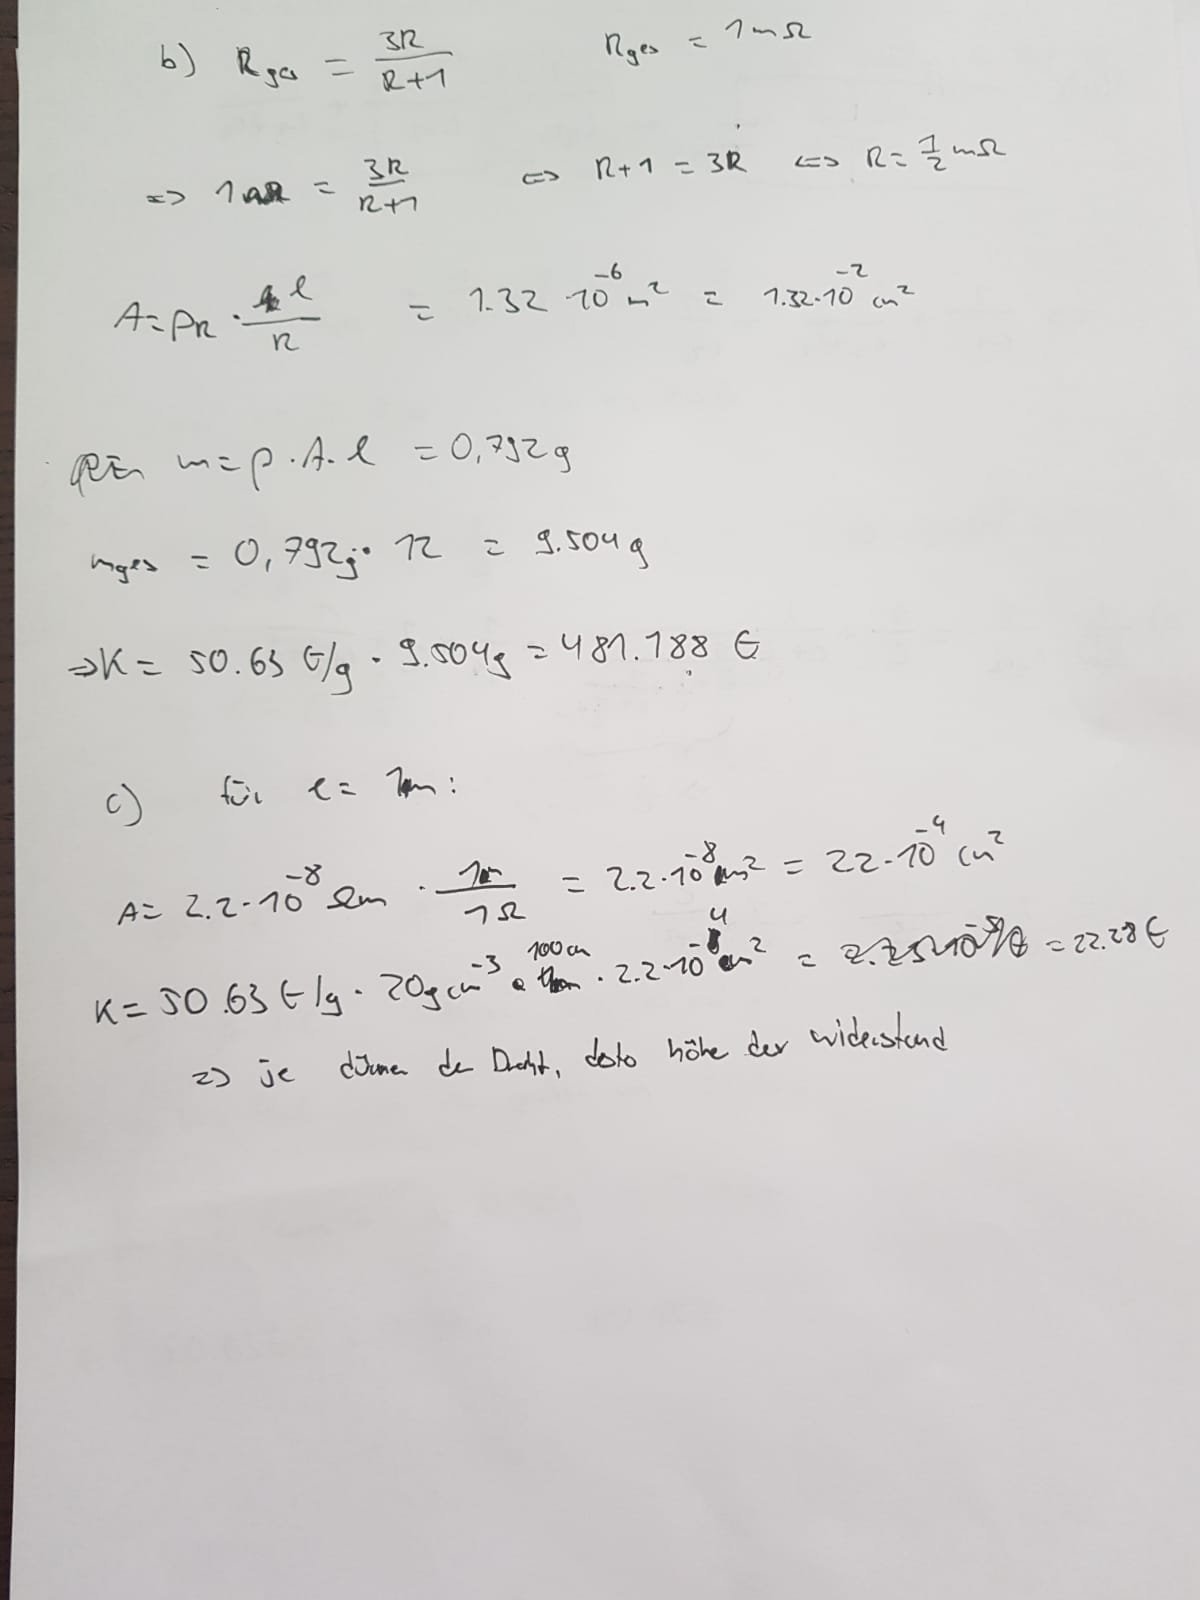 b) Rges = 3R/(R+1) Rges = 1mΩ
=> 1mΩ = 3R/(R+1) <=> R+1 = 3R <=> R = 1/2 mΩ
A = ρR · l/R = 1.32 · 10^-6 m^2 = 1.32·10^-2 cm^2
m = ρ · A · l = 0,792g
mges = 0,792g · 12 = 9.504g
=> K = 50.63 €/g · 9.504g = 481.188 €
c) für l = 1m:
A = 2.2·10^-8 Ωm · 1m/1Ω = 2.2·10^-8 m^2 = 22·10^-4 cm^2
K = 50.63 €/g · 20g cm^-3 · 100cm · 2.2·10^-4 cm^2 = = 22.28 €
=> je dünner der Draht, desto höhe der widerstand